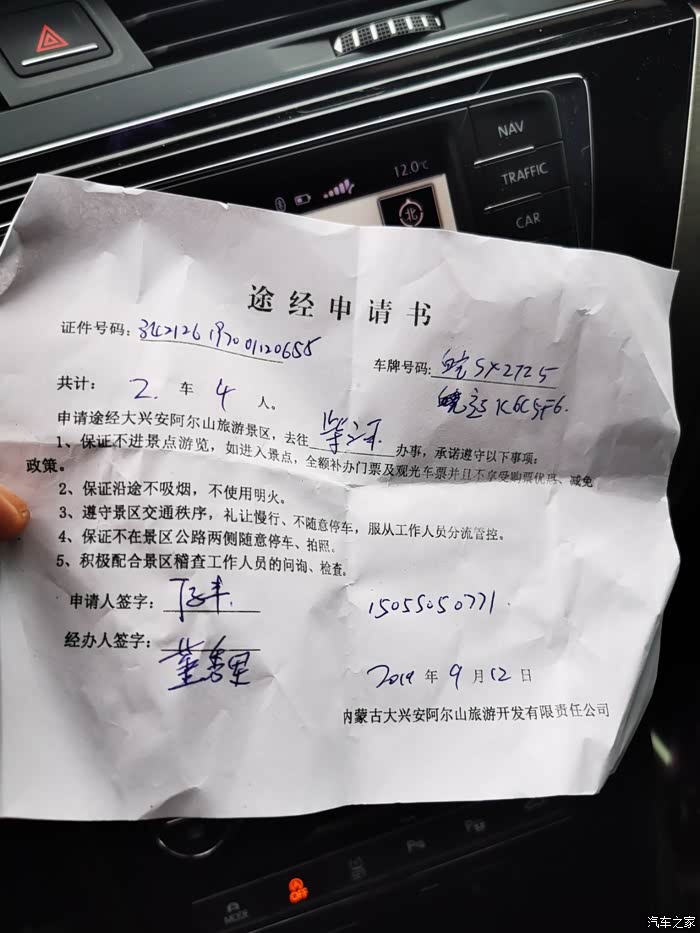 12.0℃
NAV
TRAFFIC
CAR
北
途经申请书
证件号码：
车牌号码：皖SX2725
共计： 2 车 4 人。
皖S K6C5F6
申请途经大兴安阿尔山旅游景区，去往 柴河 办事，承诺遵守以下事项：
1、保证不进景点游览，如进入景点，全额补办门票及观光车票并且不享受购票优惠、减免
政策。
2、保证沿途不吸烟，不使用明火。
3、遵守景区交通秩序，礼让慢行、不随意停车，服从工作人员分流管控。
4、保证不在景区公路两侧随意停车、拍照。
5、积极配合景区稽查工作人员的问询、检查。
申请人签字：
15055050771
经办人签字：
2019 年 9 月 12 日
内蒙古大兴安阿尔山旅游开发有限责任公司
MODE
OFF
汽车之家